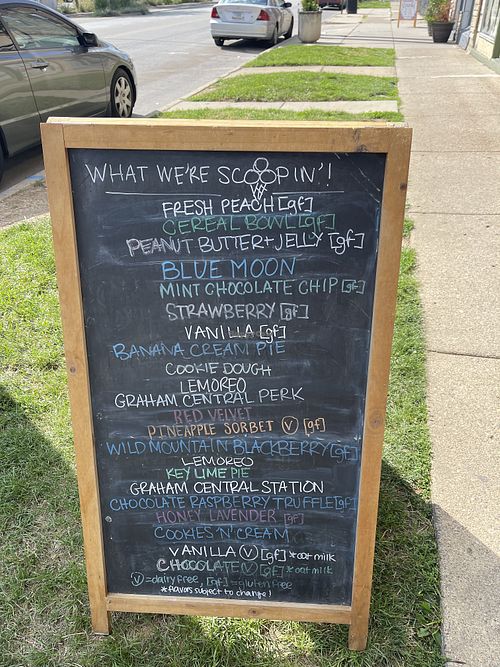 WHAT WE'RE SCOOPIN'!
FRESH PEACH [gf]
CEREAL BOWL [gf]
PEANUT BUTTER + JELLY [gf]
BLUE MOON
MINT CHOCOLATE CHIP [gf]
STRAWBERRY [gf]
VANILLA [gf]
BANANA CREAM PIE
COOKIE DOUGH
LEMOREO
GRAHAM CENTRAL PERK
RED VELVET
PINEAPPLE SORBET Ⓥ [gf]
WILD MOUNTAIN BLACKBERRY [gf]
LEMOREO
KEY LIME PIE
GRAHAM CENTRAL STATION
CHOCOLATE RASPBERRY TRUFFLE [gf]
HONEY LAVENDER [gf]
COOKIES 'N' CREAM
VANILLA Ⓥ [gf] *oat milk
CHOCOLATE Ⓥ [gf] *oat milk
Ⓥ = dairy free, [gf] = gluten free
*flavors subject to change!